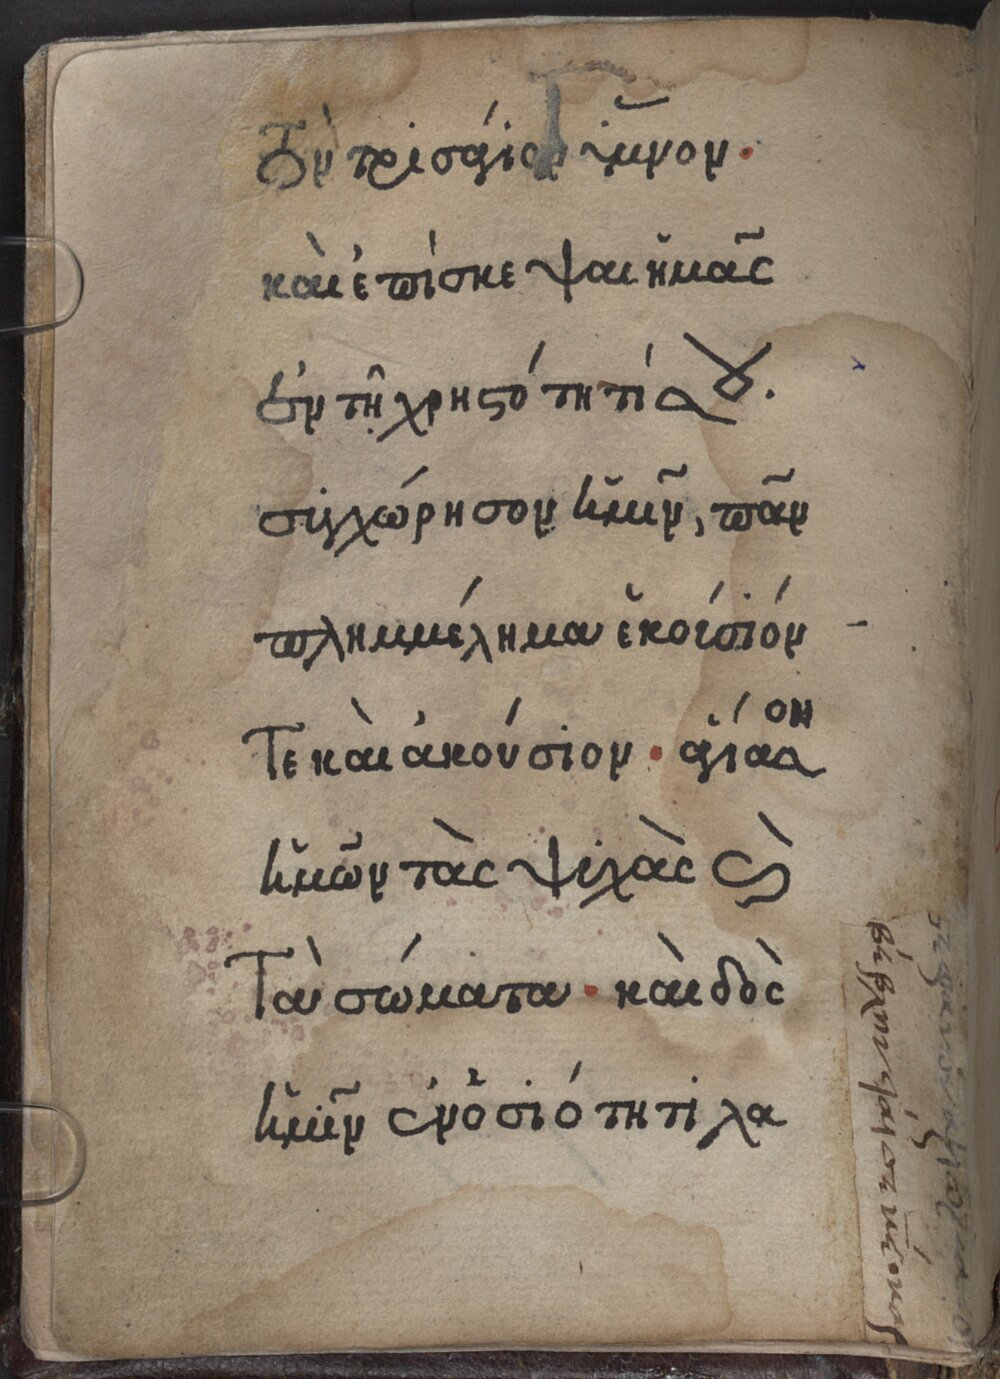 Τὸν τρισάγιον ὕμνον.
καὶ ἐπίσκεψαι ἡμᾶς
ἐν τῇ χρηστότητί σου.
συγχώρησον ἡμῖν, πᾶν
πλημμέλημα ἑκούσιόν
Τε καὶ ἀκούσιον. ἁγίασον
ἡμῶν τὰς ψυχὰς καὶ
Τὰ σώματα. καὶ δὸς
ἡμῖν ἐν ὁσιότητι λα